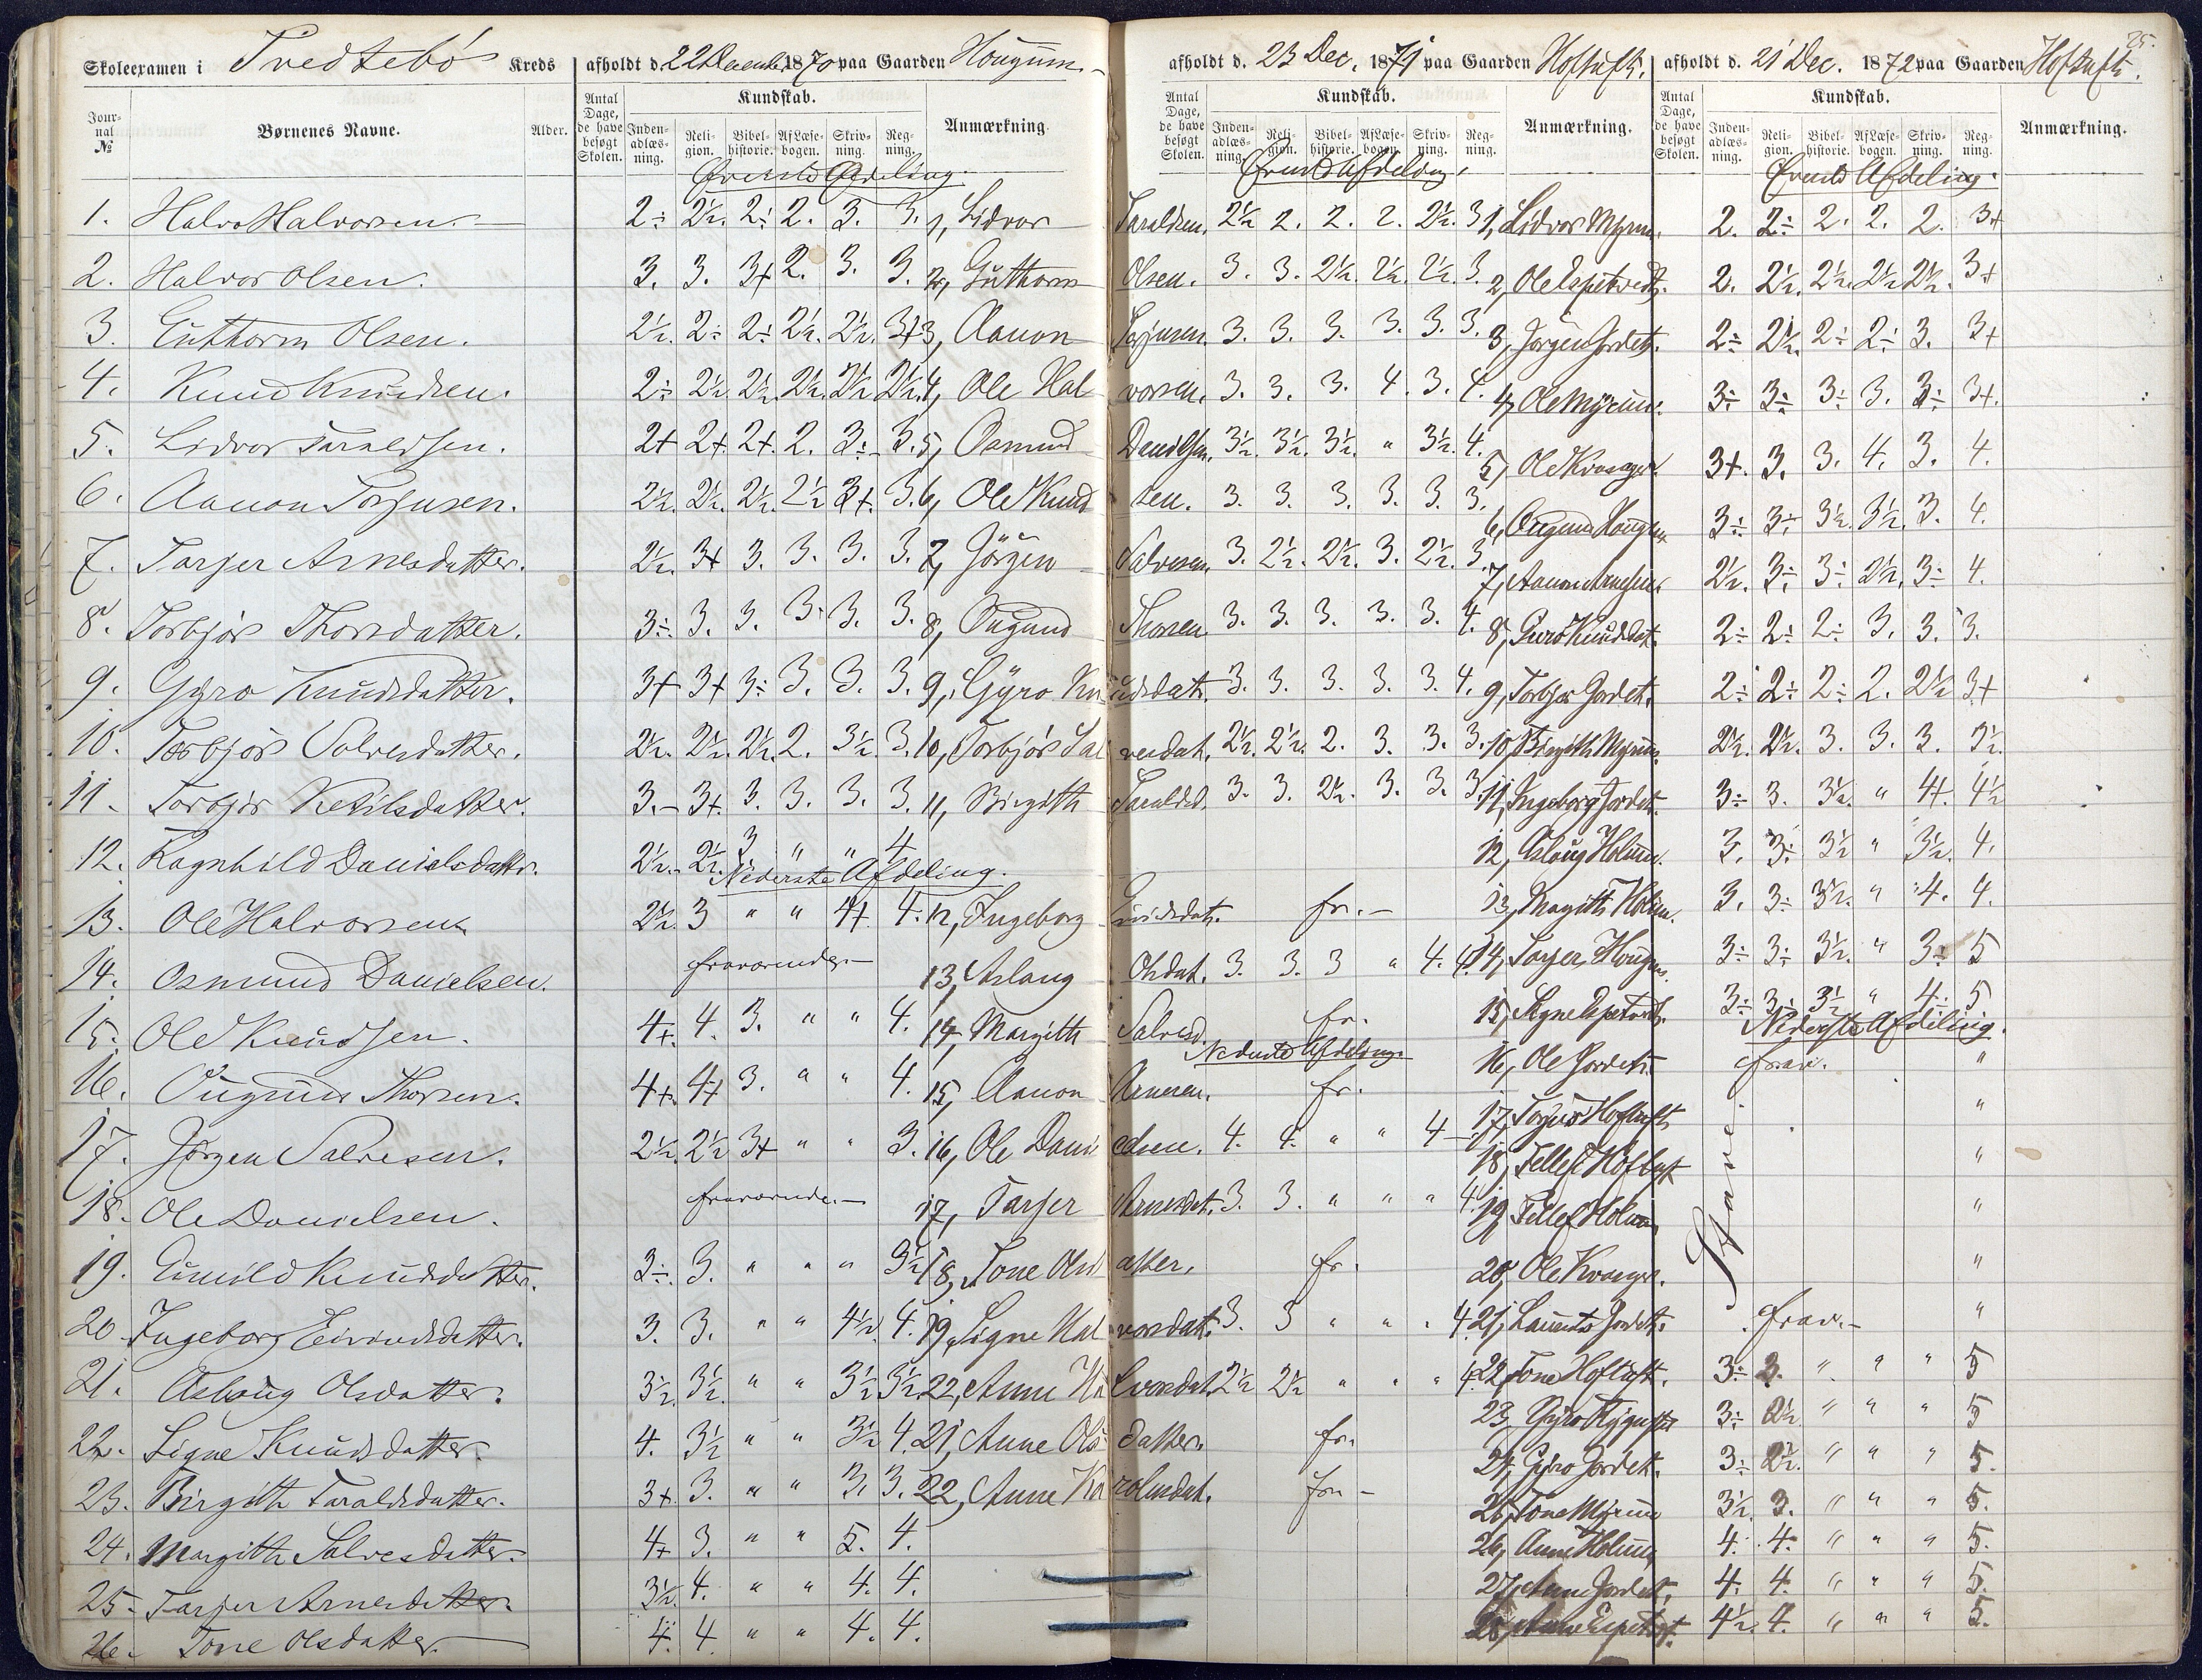 Skoleexamen i Tvedtebø Kreds afholdt d. 22 December 1870 paa Gaarden Hougum
Journal № Børnenes Navne. Alder. Antal Dage, de have besøgt Skolen. Kundskab. Indenadlæsning. Religion. Bibelhistorie. Af Læsebogen. Skrivning. Regning. Anmærkning.
Øverste Afdeling.
1. Halvo Halvorsen. 2÷ 2½. 2÷ 2. 3. 3.
2. Halvor Olsen. 3. 3. 3+ 2. 3. 3.
3. Guthorm Olsen. 2½. 2÷ 2÷ 2½. 2½. 3+
4. Knud Knudsen. 2÷ 2½ 2½. 2½. 2½ 2½.
5. Lidvor Taraldsen. 2+ 2+ 2+. 2. 3÷ 3.
6. Aanon Torjusen. 2½. 2½. 2½. 2½ 3+. 3.
7. Tarjer Arnesdatter. 2½. 3+ 3. 3. 3. 3.
8. Torbjør Thorsdatter. 3÷. 3. 3. 3. 3. 3.
9. Gyro Knudsdatter. 3+ 3+ 3÷ 3. 3. 3.
10. Torbjør Salvesdatter. 2½. 2½. 2½. 2. 3½. 3.
11. Torbjør Ketilsdatter. 3.- 3+. 3. 3. 3. 3.
12. Ragnhild Danielsdatter. 2½. 2½. 3 " " 4
Nederste Afdeling.
13. Ole Halvorsen 2½. 3 " " 4+. 4.
14. Osmund Danielsen. fraværende
15. Ole Knudsen. 4+. 4. 3. " " 4.
16. Ougund Thorsen. 4+. 4+ 3. " " 4.
17. Jørgen Salvesen. 2½. 2½ 3+ " " 3.
18. Ole Danielsen. fraværende
19. Gunild Knudsdatter. 3÷. 3. " " " 3½
20. Ingeborg Eivindsdatter. 3. 3. " " 4½ 4.
21. Aslaug Olsdatter. 3½. 3½. " " 3½ 3½
22. Signe Knudsdatter. 4. 3½ " " 3½ 4.
23. Birgith Taraldsdatter. 3+. 3. " " 3. 3.
24. Margith Salvesdatter. 4+ 3. " " 5. 4.
25. Tarjer Arnesdatter. 3½. 4. " " 4. 4.
26. Tone Olsdatter. 4. 4 " " 4. 4.
afholdt d. 23 Dec. 1871 paa Gaarden Hoftuft.
Antal Dage, de have besøgt Skolen. Kundskab. Indenadlæsning. Religion. Bibelhistorie. Af Læsebogen. Skrivning. Regning. Anmærkning.
Øverste Afdeling.
1, Lidvor Taraldsen. 2½ 2. 2. 2. 2½. 3
2, Guthorm Olsen. 3. 3. 2½. 2½. 2½. 3.
3, Aanon Torjusen. 3. 3. 3. 3. 3. 3.
4, Ole Halvorsen. 3. 3. 3. 4. 3. 4.
5, Osmund Danielsen. 3½. 3½. 3½. " 3½. 4.
6, Ole Knudsen. 3. 3. 3. 3. 3. 3.
7, Jørgen Salvesen. 3. 2½. 2½. 3. 2½. 3.
8, Ougund Thorsen. 3. 3. 3. 3. 3. 4.
9, Gyro Knudsdatt. 3. 3. 3. 3. 3. 4.
10, Torbjør Salvesdat. 2½. 2½. 2. 3. 3. 3.
11, Birgith Taraldsd. 3. 3. 2½. 3. 3. 3
12, Ingeborg Eivindsdat. fr.-
13, Aslaug Olsdat. 3. 3. 3 " 4. 4.
14, Margith Salvesd. fr.
Nederste Afdeling
15, Aanon Arnesen. fr.
16, Ole Danielsen. 4. 4. " " 4 -
17, Tarjer Arnesdat. 3. 3. " " " 4
18, Tone Olsdatter, fr.
19, Signe Halvorsdat. 3. 3 " " " 4.
22, Anne Halvorsdat. 2½ 2½ " " " 4.
21, Anne Olsdatter. fr.
22, Anne Karolusdat. fr. -
afholdt d. 21 Dec. 1872 paa Gaarden Hoftuft.
25.
Antal Dage, de have besøgt Skolen. Kundskab. Indenadlæsning. Religion. Bibelhistorie. Af Læsebogen. Skrivning. Regning. Anmærkning.
Øverste Afdeling.
1, Lidvor Myrum. 2. 2÷ 2. 2. 2. 3+
2, Ole Espetvedt. 2. 2½. 2½. 2½ 2½. 3+
3, Jørgen Jordet. 2÷ 2½. 2÷ 2÷ 3. 3+
4, Ole Myrum. 3÷ 3÷ 3÷ 3. 3÷ 3+.
5, Ole Kvaager. 3+. 3. 3. 4. 3. 4.
6, Ougund Hougum 3÷ 3÷ 3½. 3½. 3. 4.
7, Aanon 2½. 3÷ 3÷ 2½. 3÷ 4.
8, Guro Knudsdat. 2÷ 2÷ 2÷ 3. 3. 3.
9, Torbjør Jordet. 2÷ 2÷ 2÷ 2. 2½ 3+
10, Birgith Myrum. 2½. 2½. 3. 3. 3. 3½.
11, Ingeborg Jordet. 3÷ 3. 3½. " 4+. 4½
12, Aslaug Holum. 3. 3÷ 3½ " 3½. 4.
13, Margith Holum. 3. 3÷ 3½. " 4. 4.
14, Tarjer Hougum. 3÷ 3÷ 3½. " 3÷ 5
15, Signe Espetvedt. 3÷ 3÷ 3½ " 4÷ 5
Nederste Afdeling.
16, Ole Jordet. frav. "
17, Torjus Hoftuft "
18, Tellef Hoftuft "
19, Tellef Holum "
20, Ole Kvaager. "
21, Laurits Jordet. frav.- "
22, Tone Hoftuft. 3÷ 3. " " " 5
23, Gyro 3÷ 2½ " " " 5
24, Gyro Jordet. 3÷ 2½. " " " 5.
25, Tone Myrum 3½. 3. " " " 5.
26, Anne Holum, 4. 4. " " " 5.
27, Anne Jordet, 4. 4. " " " 5.
28, Anne Espetvedt. 4½. 4. " " " 5.